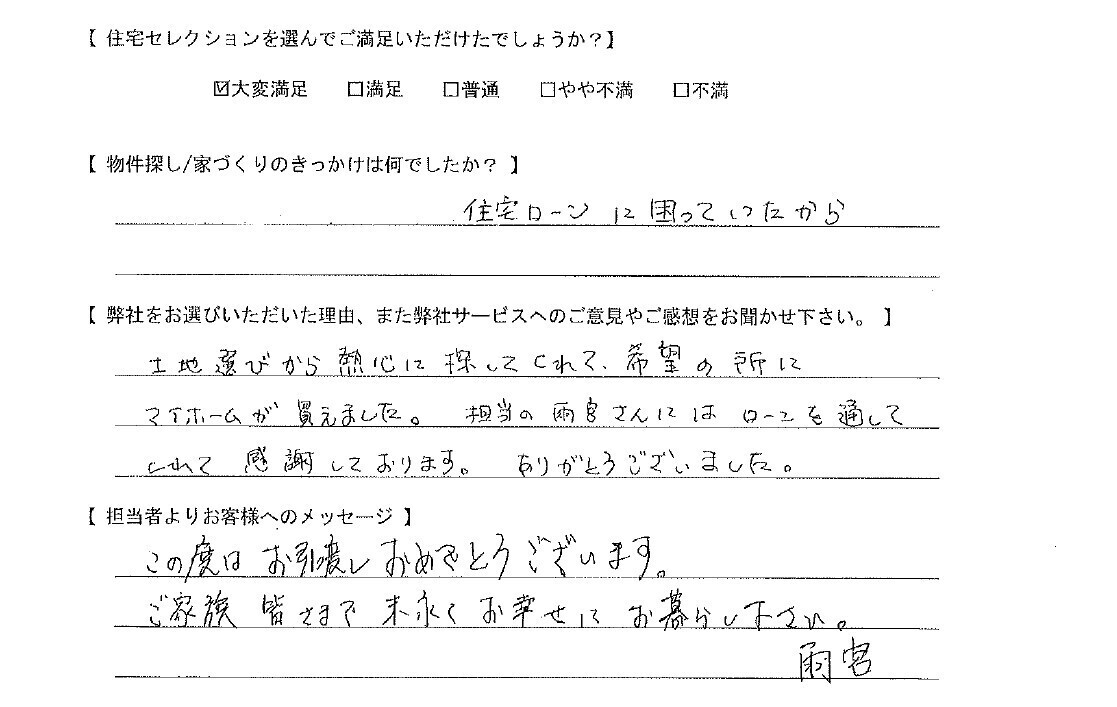 【 住宅セレクションを選んでご満足いただけたでしょうか？】
☑大変満足 □満足 □普通 □やや不満 □不満
【 物件探し/家づくりのきっかけは何でしたか？ 】
住宅ローンに困っていたから
【 弊社をお選びいただいた理由、また弊社サービスへのご意見やご感想をお聞かせ下さい。 】
土地選びから熱心に探してくれて、希望の所に
マイホームが買えました。 担当の雨宮さんにはローンを通して
くれて感謝しております。 ありがとうございました。
【 担当者よりお客様へのメッセージ 】
この度はお引渡しおめでとうございます。
ご家族皆さまで末永くお幸せにお暮らし下さい。
雨宮